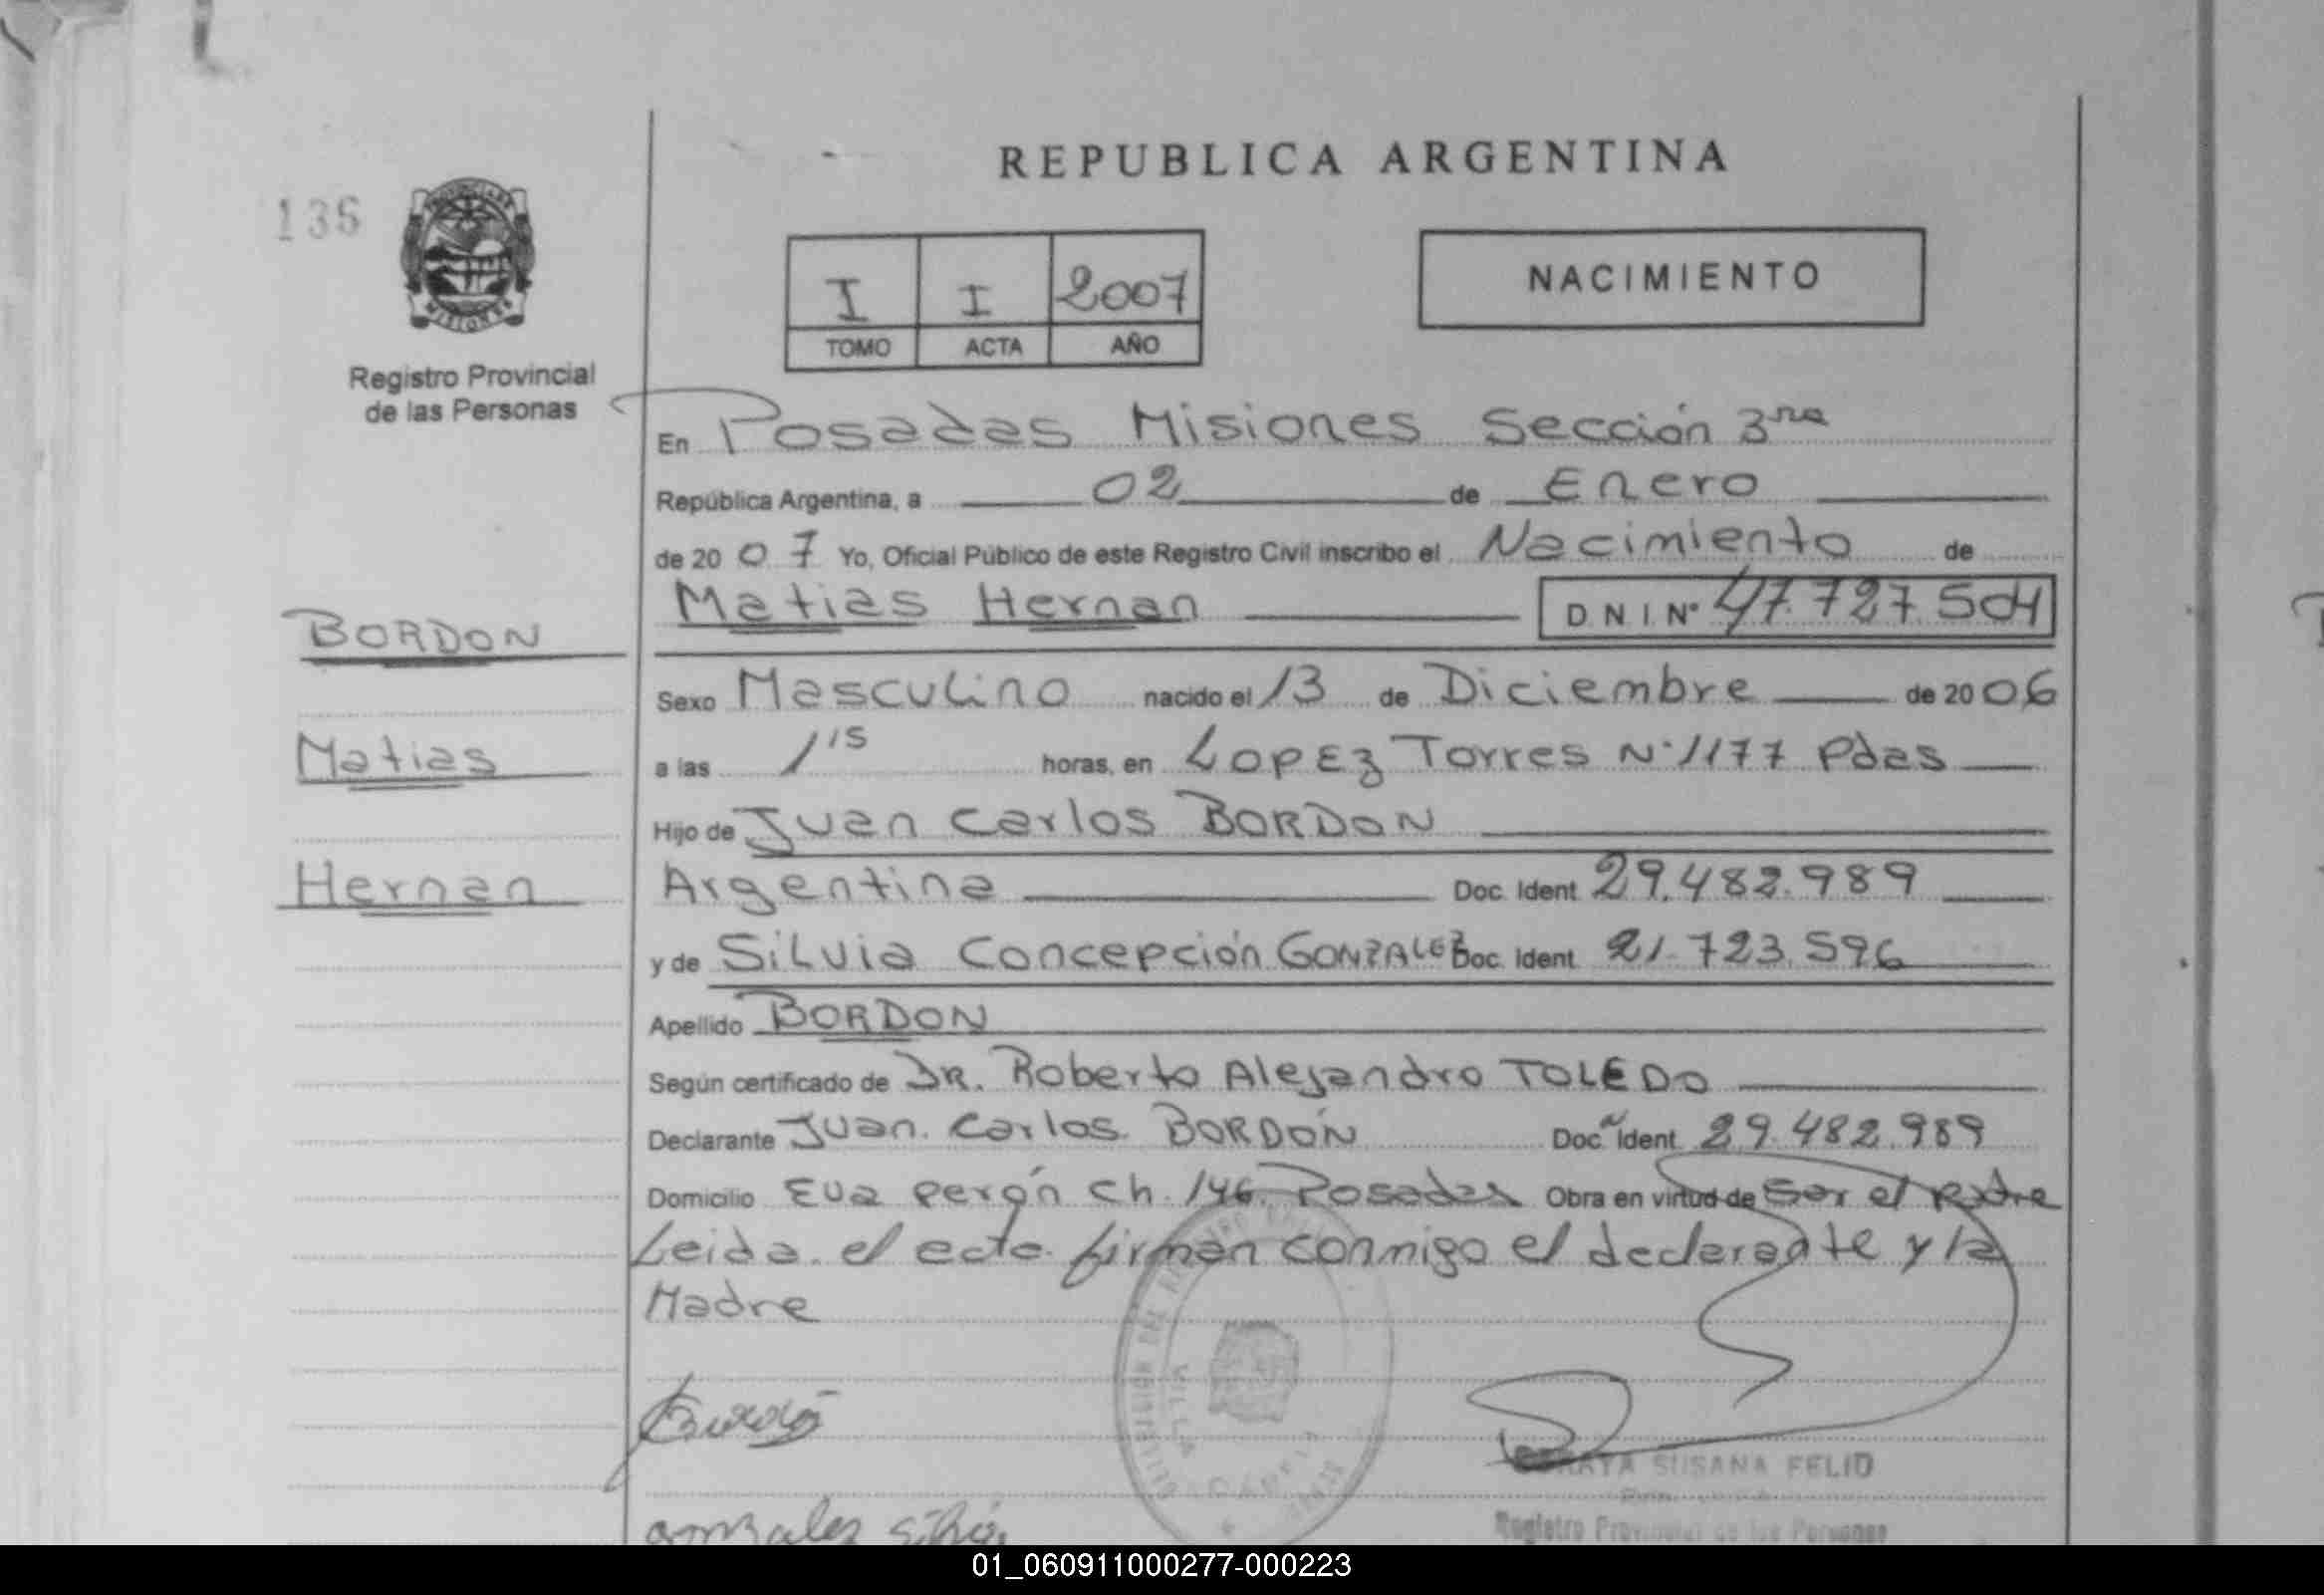 REPUBLICA ARGENTINA
136
PROVINCIA DE MISIONES
Registro Provincial
de las Personas
I I 2007
TOMO ACTA AÑO
NACIMIENTO
En Posadas Misiones Sección 3ra
República Argentina, a 02 de Enero
de 2007 Yo, Oficial Público de este Registro Civil inscribo el Nacimiento de
Matias Hernan D N I Nº 47.727.504
BORDON
Sexo Masculino nacido el 13 de Diciembre de 2006
Matias
a las 1 15 horas, en LOPEZ Torres Nº 1177 Pdas
Hijo de Juan Carlos BORDON
Hernan
Argentina Doc. Ident 29.482.989
y de Silvia Concepción GONZALEZ Doc. Ident 21.723.596
Apellido BORDON
Según certificado de DR. Roberto Alejandro TOLEDO
Declarante Juan Carlos BORDÓN Doc. Ident 29.482.989
Domicilio Eva perón Ch. 146 Posadas Obra en virtud de Ser el Padre
Leida el acta firman conmigo el declarante y la
Madre
Bordón
SUSANA FELID
Gonzalez Silvia
Registro Provincial de las Personas
01_060911000277-000223